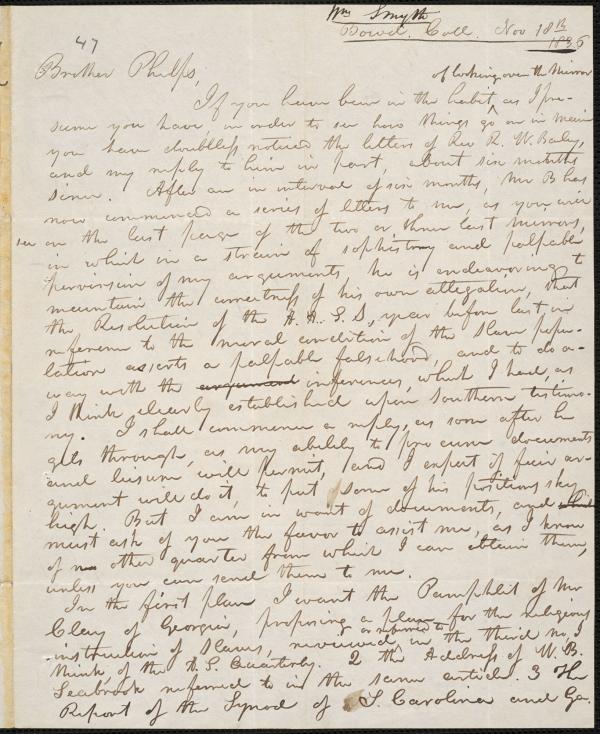 Wm Smyth
47
Bowd. Coll. Nov 18th
1836
Brother Phelps,
of looking over the Mirror
If you have been in the habit, as I pre-
sume you have, in order to see how things go on in Maine
you have doubtless noticed the letters of Rev R. W. Baily,
and my reply to him in part, about six months
since. After an interval of six months, Mr B has
now commenced a series of letters to me, as you will
see on the last page of the two or three last Mirrors,
in which in a strain of sophistry and palpable
perversion of my arguments, he is endeavoring to
maintain the correctness of his own allegation, that
the Resolution of the A. A. S. S, year before last in
reference to the moral condition of the slave popu-
lation asserts a palpable falsehood, and to do a-
way with the argument inferences, which I had, as
I think clearly established upon Southern testimo-
ny. I shall commence a reply, as soon after he
gets through, as my ability to procure documents
and leisure will permit, and I expect if fair ar-
gument will do it, to put some of his positions sky
high. But I am in want of documents, and
must ask of you the favor to assist me, as I know
of no other quarter from which I can obtain them,
unless you can send them to me.
In the first place I want the Pamphlet of Mr
Clay of Georgia, proposing a plan for the religious
instruction of slaves, reviewed or referred to in the third No, I
think, of the A. S. Quarterly. 2 the Address of W. B.
Seabrook referred to in the same article. 3 The
Report of the Synod of S. Carolina and Ga.